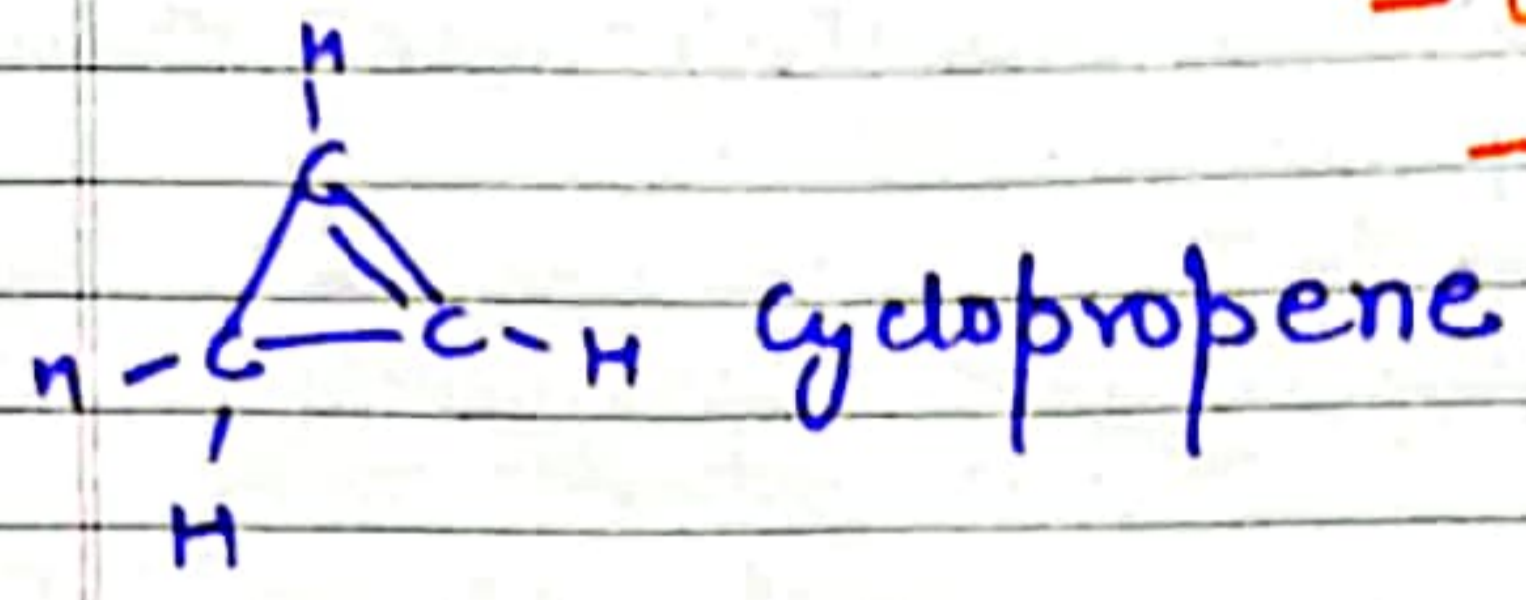 H
C
H - C C - H Cyclopropene
H